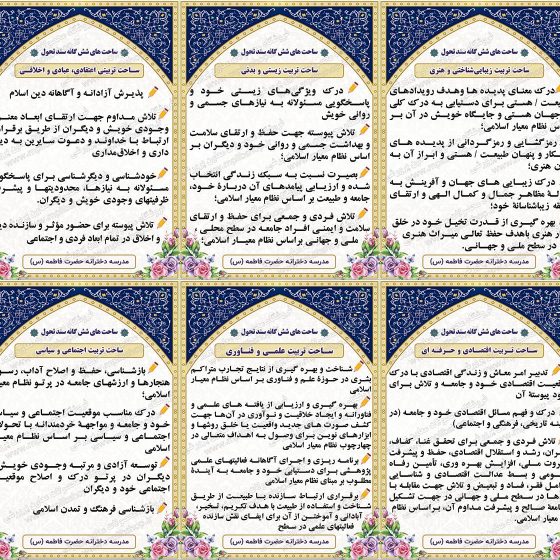 ساحت های شش گانه سند تحول
ساحت تربیت زیبایی‌شناختی و هنری
درک معنای پدیده ها وهدف رویدادهای
/ هستی برای دستیابی به درک کلی
جهان هستی و جایگاه خویش در آن بر
نظام معیار اسلامی؛
رمزگشایی و رمزگردانی از پدیده های
و پنهان طبیعت / هستی و ابراز آن به
هنری؛
درک زیبایی های جهان و آفرینش به
مظاهر جمال و کمال الهی و ارتقای
زیباشناسانهٔ خود؛
بهره گیری از قدرت تخیل خود در خلق
هنری باهدف حفظ تعالی میراث هنری
در سطح ملی و جهانی.
مدرسه دخترانه حضرت فاطمه (س)
ساحت های شش گانه سند تحول
ساحت تربیت زیستی و بدنی
درک ویژگی‌های زیستی خود و
پاسخگویی مسئولانه به نیازهای جسمی و
روانی خویش
تلاش پیوسته جهت حفظ و ارتقای سلامت
و بهداشت جسمی و روانی خود و دیگران بر
اساس نظام معیار اسلامی؛
بصیرت نسبت به سبک زندگی انتخاب
شده و ارزیابی پیامدهای آن دربارهٔ خود،
جامعه و طبیعت بر اساس نظام معیار اسلامی؛
تلاش فردی و جمعی برای حفظ و ارتقای
سلامت و ایمنی افراد جامعه در سطح محلی ،
ملی و جهانی براساس نظام معیار اسلامی؛
مدرسه دخترانه حضرت فاطمه (س)
ساحت های شش گانه سند تحول
ساحت تربیتی اعتقادی، عبادی و اخلاقی
پذیرش آزادانه و آگاهانه دین اسلام
تلاش مداوم جهت ارتقای ابعاد معنوی
وجودی خویش و دیگران از طریق برقراری
ارتباط با خداوند و دعوت سایرین به دین
داری و اخلاق‌مداری
خودشناسی و دیگرشناسی برای پاسخگویی
مسئولانه به نیازها، محدودیتها و
ظرفیتهای وجودی خویش و دیگران.
تلاش پیوسته برای حضور مؤثر و سازنده
و اخلاق در تمام ابعاد فردی و اجتماعی
مدرسه دخترانه حضرت فاطمه (س)
ساحت های شش گانه سند تحول
ساحت تربیت اقتصادی و حرفه ای
تدبیر امر معاش و زندگی اقتصادی با درک
اقتصادی خود و جامعه و تلاش برای
پیوستهٔ آن
درک و فهم مسائل اقتصادی خود و جامعه (در
تاریخی، فرهنگی و اجتماعی)
تلاش فردی و جمعی برای تحقق غنا، کفاف،
رشد و استقلال اقتصادی، حفظ و پیشرفت
ملی، افزایش بهره وری، تأمین رفاه
و بسط عدالت اقتصادی و شناسایی
فقر، فساد و تبعیض و تلاش جهت مقابله با
در سطح ملی و جهانی در جهت تشکیل
صالح و پیشرفت مداوم آن، براساس نظام
اسلامی.
مدرسه دخترانه حضرت فاطمه (س)
ساحت های شش گانه سند تحول
ساحت تربیت علمی و فناوری
شناخت و بهره گیری از نتایج تجارب متراکم
بشری در حوزهٔ علم و فناوری بر اساس نظام معیار
اسلامی؛
بهره گیری و ارزیابی از یافته های علمی و
فناورانه و ایجاد خلاقیت و نوآوری در آن‌ها جهت
کشف صورت های جدید واقعیت یا خلق روشها و
ابزارهای نوین برای وصول به اهداف متعالی در
چهارچوب نظام معیار اسلامی؛
برنامه ریزی و اجرای آگاهانهٔ فعالیتهای علمی
پژوهشی برای دستیابی خود و جامعه به آیندهٔ
مطلوب بر مبنای نظام معیار اسلامی؛
برقراری ارتباط سازنده با طبیعت از طریق
شناخت و استفاده از طبیعت با هدف تکریم، تسخیر،
آبادانی و آموختن از آن برای ایفای نقش سازنده
فعالیتهای علمی در سطح
مدرسه دخترانه حضرت فاطمه (س)
ساحت های شش گانه سند تحول
ساحت تربیت اجتماعی و سیاسی
بازشناسی، حفظ و اصلاح آداب، رسوم،
هنجارها و ارزشهای جامعه در پرتو نظام معیار
اسلامی؛
درک مناسب موقعیت اجتماعی و سیاسی
خود و جامعه و مواجههٔ خردمندانه با تحولات
اجتماعی و سیاسی بر اساس نظام معیار
اسلامی؛
توسعه آزادی و مرتبه وجودی خویش
دیگران در پرتو درک و اصلاح موقعیت
اجتماعی خود و دیگران
بازشناسی فرهنگ و تمدن اسلامی
مدرسه دخترانه حضرت فاطمه (س)